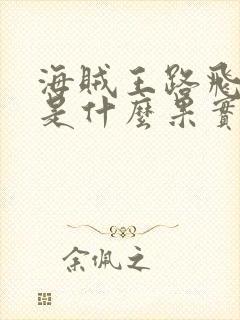 海贼王路飛
是什麼果實
余佩之